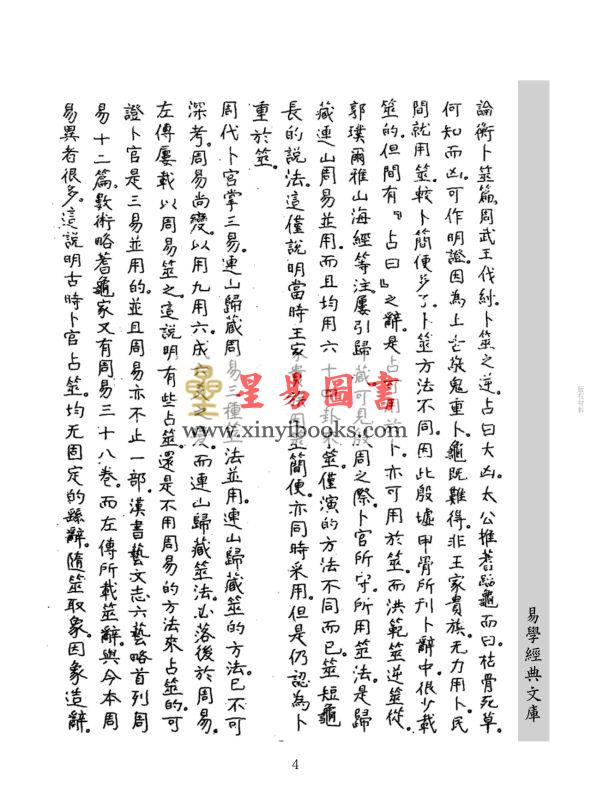 論衡卜筮篇。周武王伐紂。卜筮之。逆。占曰大凶。太公推蓍蹈龜而曰。枯骨死草。
何知而凶。可作明證。因為上古敬鬼重卜。龜既難得。非王家貴族。无力用卜。民
間就用筮。較卜簡便多了。卜筮方法不同。因此殷墟甲骨所刋卜辭中。很少載
筮的。但間有『占曰』之辭。是占可用於卜。亦可用於筮。而洪範筮逆筮從。
郭璞爾雅山海經等注。屢引歸藏。可見殷周之際。卜官所守所用筮法。是歸
藏連山周易並用。而且均用六十四卦來筮。僅演的方法不同而已。筮短龜
長的說法。這僅說明當時王家貴族因筮簡便。亦同時采用。但是仍認為卜
重於筮。
周代卜官掌三易。連山歸藏周易三種筮法並用。連山歸藏筮的方法。已不可
深考。周易尚變。以用九用六。成六爻之變。而連山歸藏筮法。必落後於周易。
左傳屢載以周易筮之。這說明有些占筮還是不用周易的方法來占筮的。可
證卜官是三易並用的。並且周易亦不止一部。漢書藝文志六藝略首列周
易十二篇。數術略蓍龜家又有周易三十八卷。而左傳所載筮辭。與今本周
易異者很多。這說明古時卜官占筮。均无固定的繇辭。隨筮取象。因象造辭。
易學經典文庫
版权材料
星易圖書
www.xinyibooks.com
4